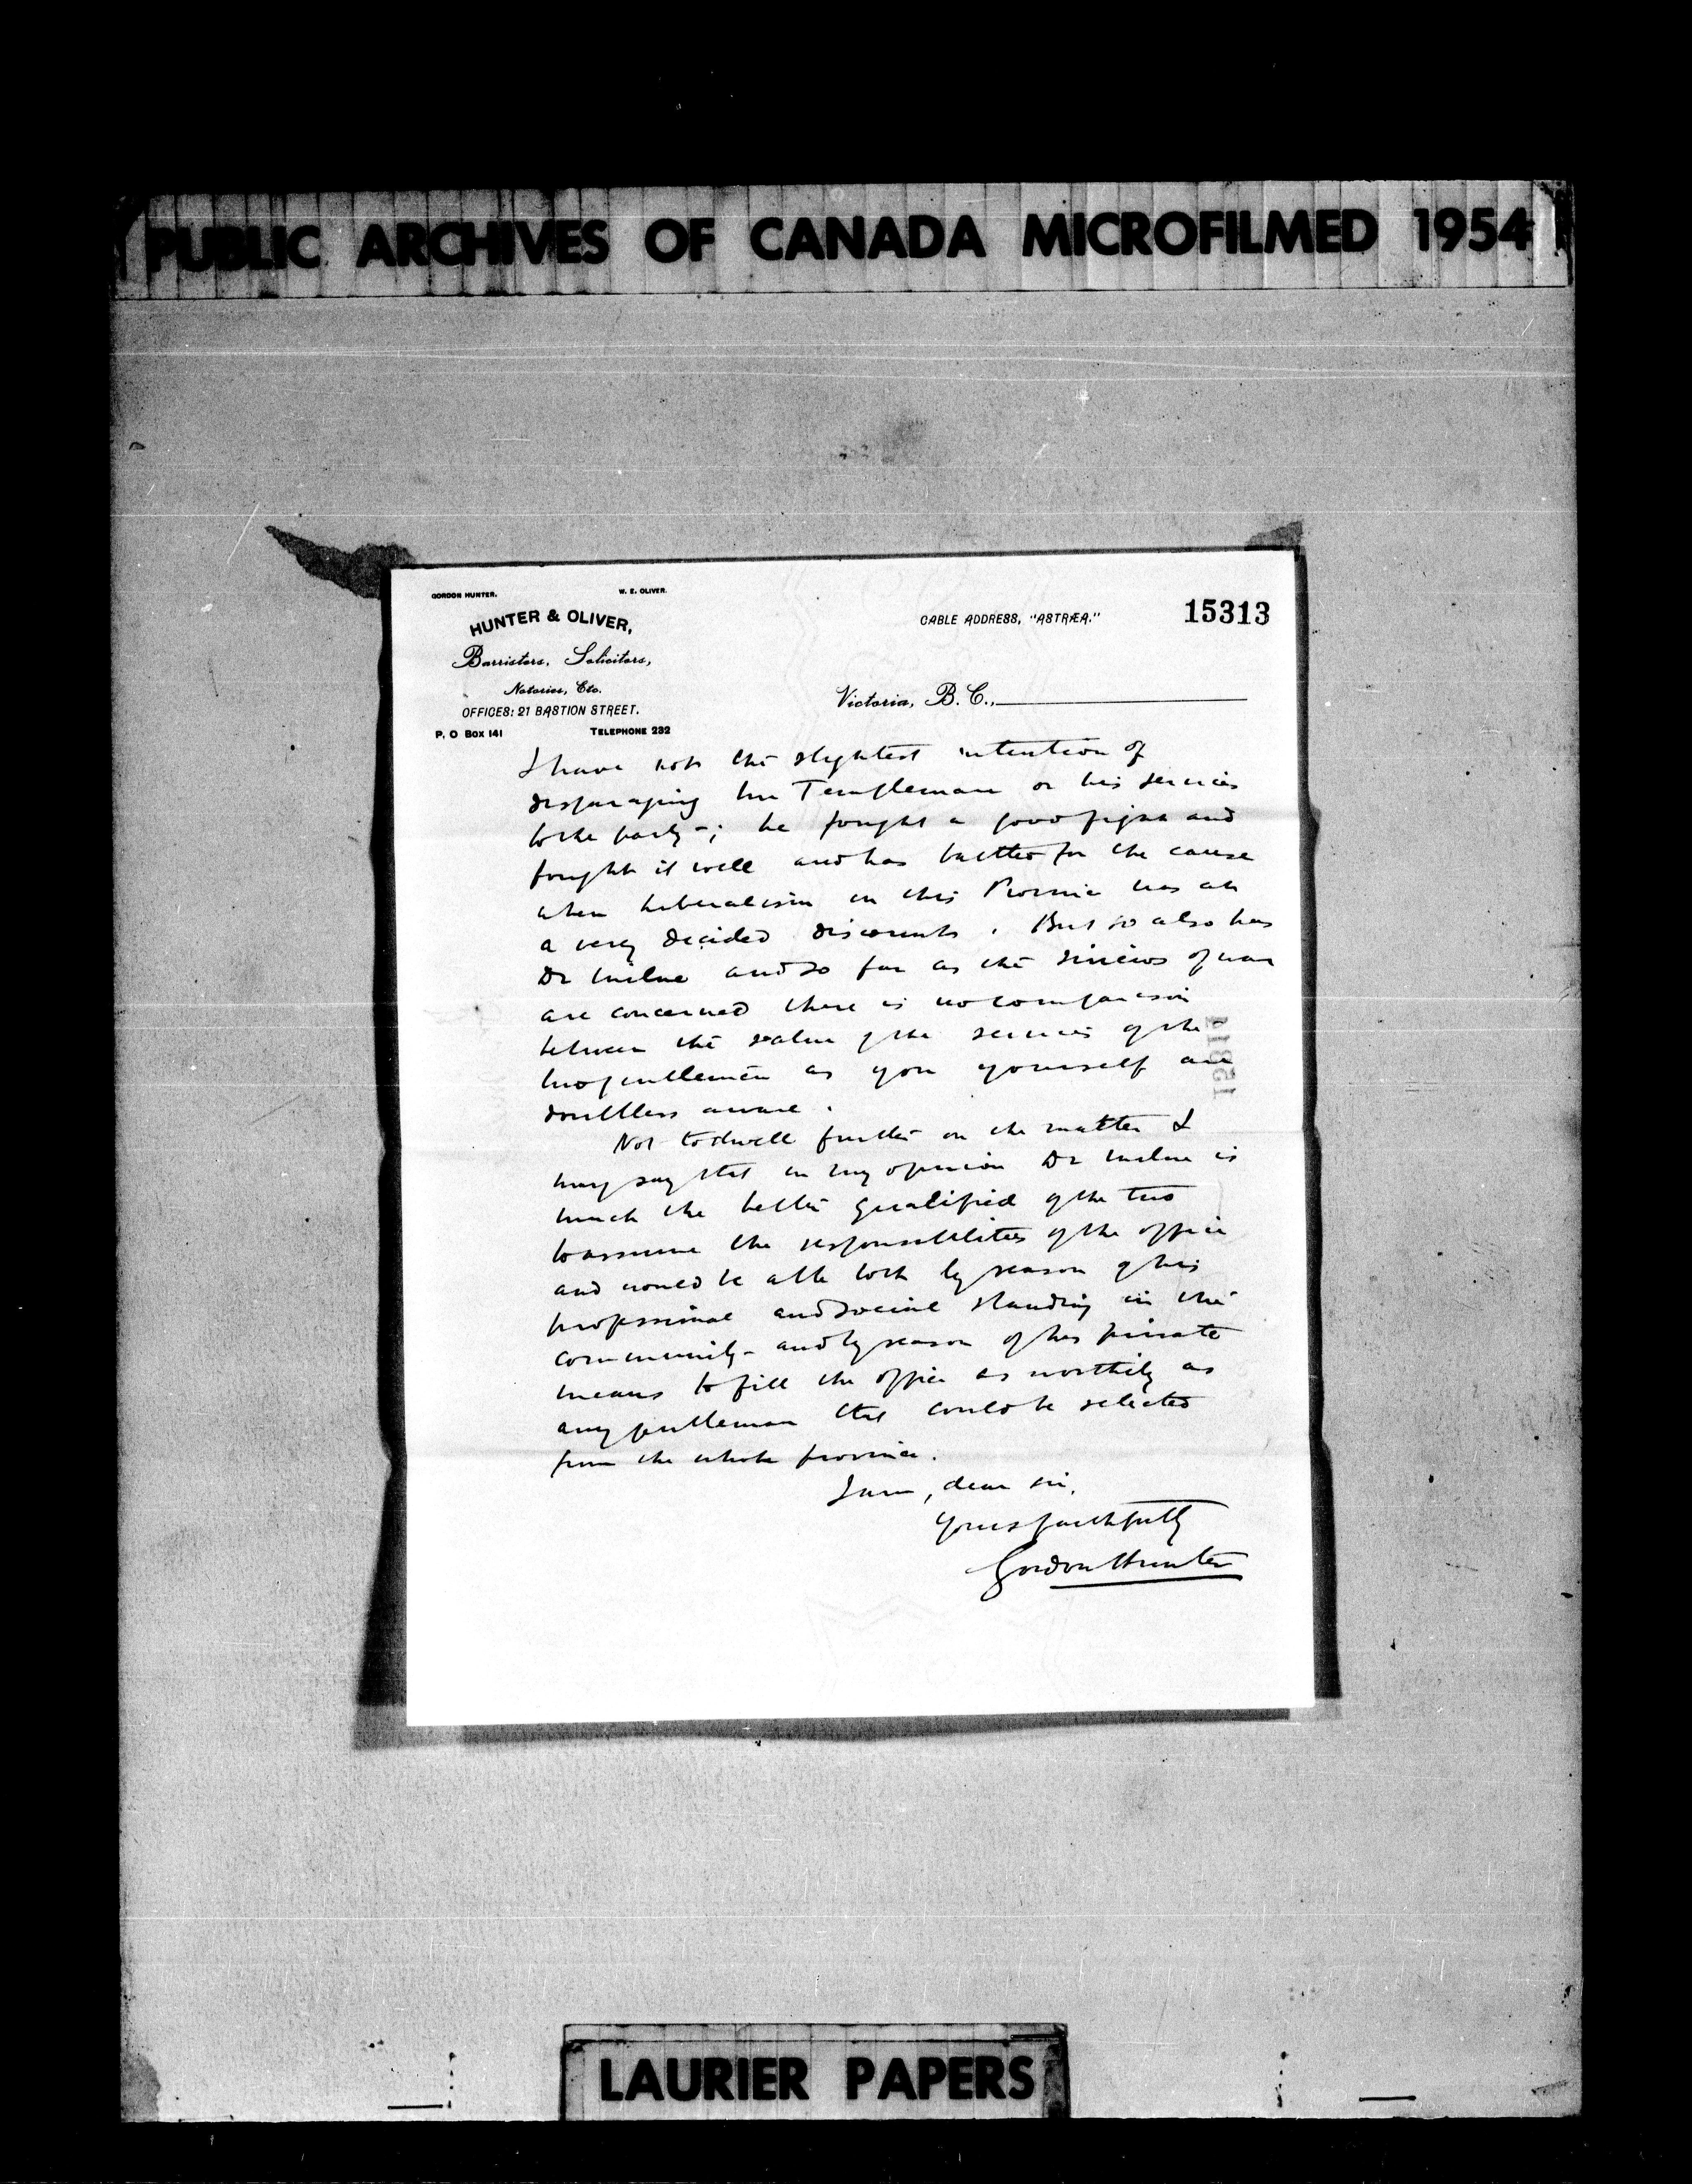 PUBLIC ARCHIVES OF CANADA MICROFILMED 1954
GORDON HUNTER. W. E. OLIVER.
HUNTER & OLIVER,
Barristers, Solicitors,
Notaries, Etc.
OFFICES: 21 BASTION STREET.
P. O Box 141 TELEPHONE 232
CABLE ADDRESS, "ASTRÆA."
15313
Victoria, B. C.,
I have not the slightest intention of
disparaging Mr Templeman or his services
to the party; he fought a good fight and
fought it well and has battled for the cause
when liberalism in this Province was at
a very decided discount. But so also has
Dr Milne and so far as the sinews of war
are concerned there is no comparison
between the value of the services of the
two gentlemen as you yourself are
doubtless aware.
Not to dwell further on the matter I
may say that in my opinion Dr Milne is
much the better qualified of the two
to assume the responsibilities of the office
and would be able both by reason of his
professional and social standing in the
community and by reason of his private
means to fill the office as worthily as
any gentleman that could be selected
from the whole province.
I am, dear sir,
Yours faithfully
Gordon Hunter
LAURIER PAPERS